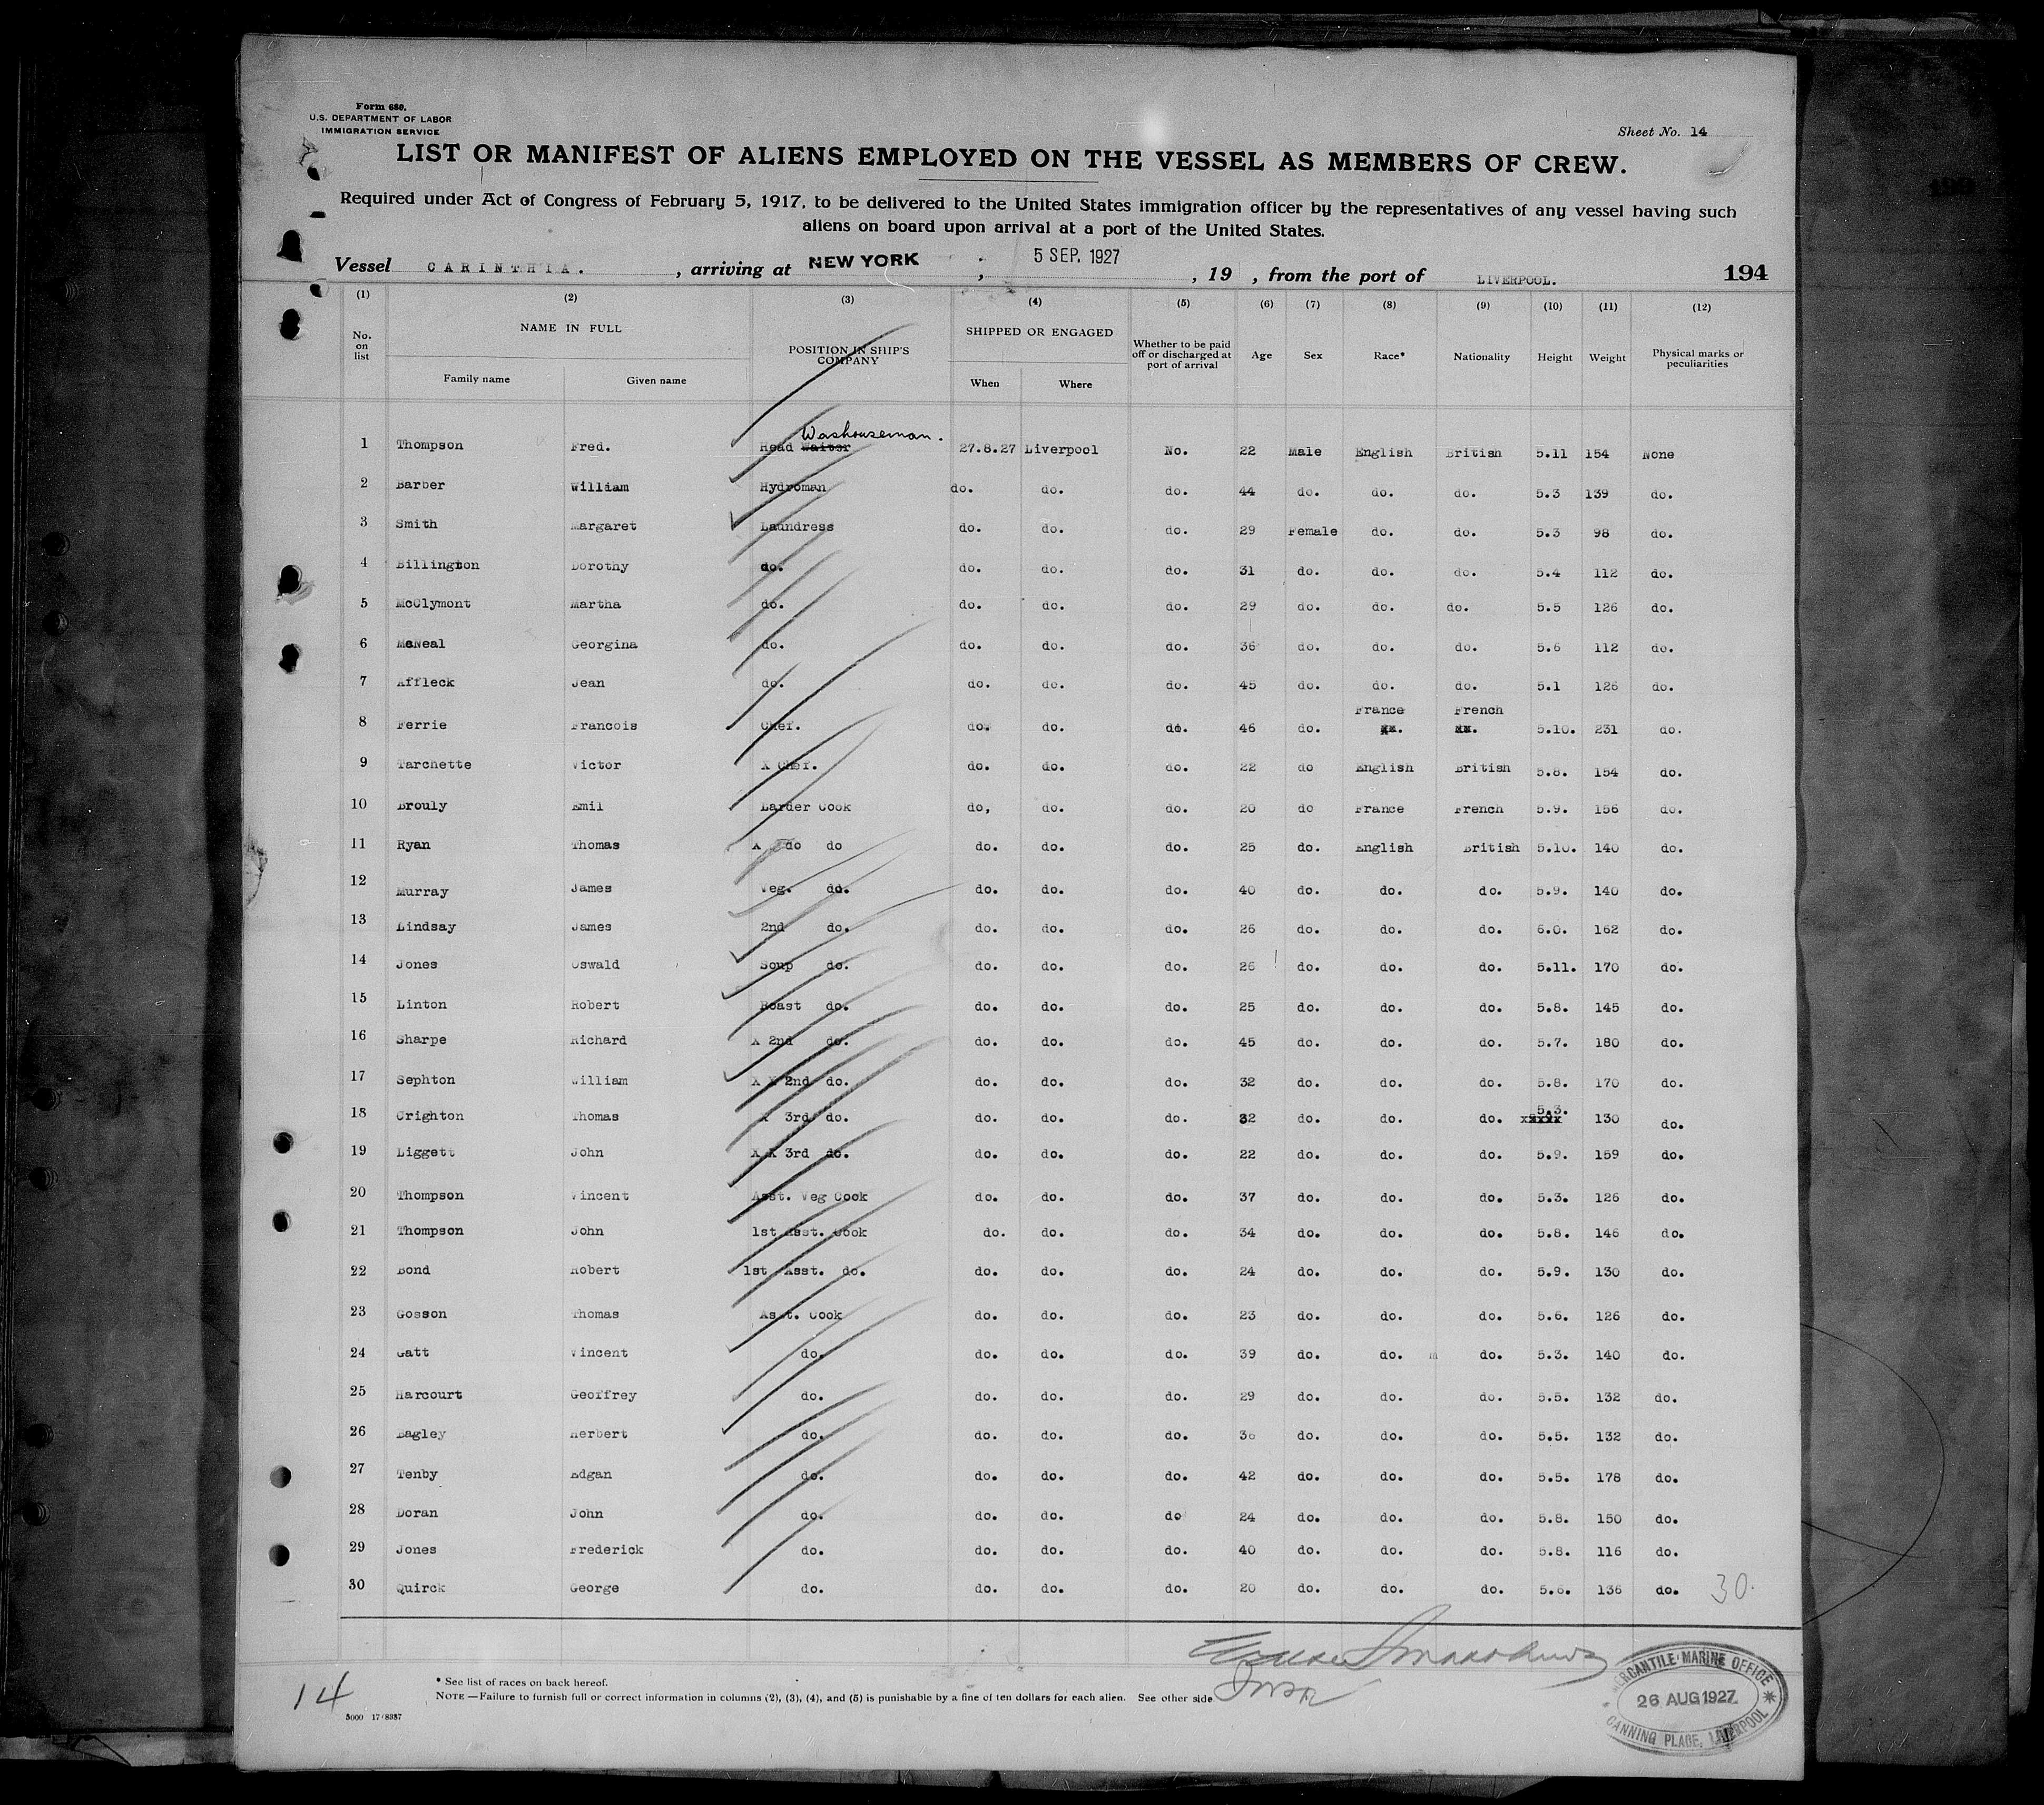 Form 689.
U.S. DEPARTMENT OF LABOR
IMMIGRATION SERVICE
Sheet No. 14
LIST OR MANIFEST OF ALIENS EMPLOYED ON THE VESSEL AS MEMBERS OF CREW.
Required under Act of Congress of February 5, 1917, to be delivered to the United States immigration officer by the representatives of any vessel having such
aliens on board upon arrival at a port of the United States.
Vessel CARINTHIA. , arriving at NEW YORK , 5 SEP. 1927 , 19 , from the port of LIVERPOOL. 194
(1) (2) (3) (4) (5) (6) (7) (8) (9) (10) (11) (12)
No. on list NAME IN FULL Family name Given name POSITION IN SHIP'S COMPANY SHIPPED OR ENGAGED When Where Whether to be paid off or discharged at port of arrival Age Sex Race* Nationality Height Weight Physical marks or peculiarities
Washouseman.
1 Thompson Fred. Head Waiter 27.8.27 Liverpool No. 22 Male English British 5.11 154 None
2 Barber William Hydroman do. do. do. 44 do. do. do. 5.3 139 do.
3 Smith Margaret Laundress do. do. do. 29 Female do. do. 5.3 98 do.
4 Billington Dorothy do. do. do. do. 31 do. do. do. 5.4 112 do.
5 McClymont Martha do. do. do. do. 29 do. do. do. 5.5 126 do.
6 McNeal Georgina do. do. do. do. 36 do. do. do. 5.6 112 do.
7 Affleck Jean do. do. do. do. 45 do. do. do. 5.1 126 do.
France French
8 Ferrie Francois Chef. do. do. do. 46 do. xx. xx. 5.10. 231 do.
9 Tarchette Victor X Chef. do. do. do. 22 do English British 5.8. 154 do.
10 Brouly Emil Larder Cook do, do. do. 20 do France French 5.9. 156 do.
11 Ryan Thomas X do do do. do. do. 25 do. English British 5.10. 140 do.
12 Murray James Veg. do. do. do. do. 40 do. do. do. 5.9. 140 do.
13 Lindsay James 2nd do. do. do. do. 26 do. do. do. 6.0. 162 do.
14 Jones Oswald Soup do. do. do. do. 26 do. do. do. 5.11. 170 do.
15 Linton Robert Roast do. do. do. do. 25 do. do. do. 5.8. 145 do.
16 Sharpe Richard X 2nd do. do. do. do. 45 do. do. do. 5.7. 180 do.
17 Sephton William X X 2nd do. do. do. do. 32 do. do. do. 5.8. 170 do.
5.3.
18 Crighton Thomas X 3rd do. do. do. do. 32 do. do. do. xxxxx 130 do.
19 Liggett John X X 3rd do. do. do. do. 22 do. do. do. 5.9. 159 do.
20 Thompson Vincent Asst. Veg Cook do. do. do. 37 do. do. do. 5.3. 126 do.
21 Thompson John 1st Asst. Cook do. do. do. 34 do. do. do. 5.8. 146 do.
22 Bond Robert 1st Asst. do. do. do. do. 24 do. do. do. 5.9. 130 do.
23 Gosson Thomas Asst. Cook do. do. do. 23 do. do. do. 5.6. 126 do.
24 Gatt Vincent do. do. do. do. 39 do. do. do. 5.3. 140 do.
25 Harcourt Geoffrey do. do. do. do. 29 do. do. do. 5.5. 132 do.
26 Bagley Herbert do. do. do. do. 36 do. do. do. 5.5. 132 do.
27 Tenby Edgan do. do. do. do. 42 do. do. do. 5.5. 178 do.
28 Doran John do. do. do. do 24 do. do. do. 5.8. 150 do.
29 Jones Frederick do. do. do. do. 40 do. do. do. 5.8. 116 do.
30 Quirck George do. do. do. do. 20 do. do. do. 5.6. 136 do. 30.
14
* See list of races on back hereof.
NOTE — Failure to furnish full or correct information in columns (2), (3), (4), and (5) is punishable by a fine of ten dollars for each alien. See other side
MERCANTILE MARINE OFFICE
26 AUG 1927
CANNING PLACE, LIVERPOOL